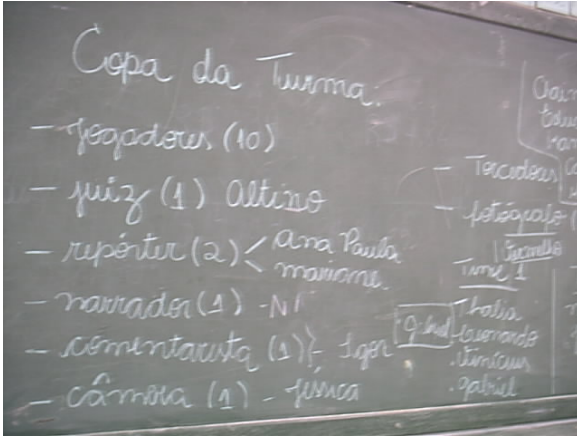 Copa da Turma:
- jogadores (10)
- juiz (1) Altino
- repórter (2) < Ana Paula
mariane
- narrador (1) - N
- comentarista (1) - Igor
- câmera (1) - Jéssica
- Torcedores
- fotógrafo (
Vermelho
Time 1
Thalia
.Leonardo
.Vinícius
.gabriel